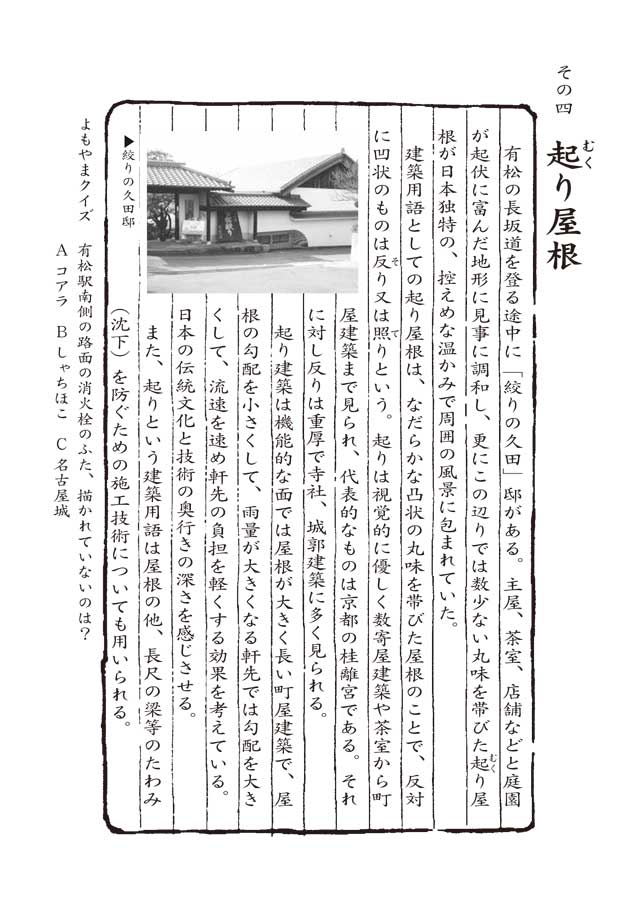 その四
起り屋根
むく
有松の長坂道を登る途中に「絞りの久田」邸がある。主屋、茶室、店舗などと庭園
が起伏に富んだ地形に見事に調和し、更にこの辺りでは数少ない丸味を帯びた起り屋
むく
根が日本独特の、控えめな温かみで周囲の風景に包まれていた。
建築用語としての起り屋根は、なだらかな凸状の丸味を帯びた屋根のことで、反対
に凹状のものは反り又は照りという。起りは視覚的に優しく数寄屋建築や茶室から町
そ
て
屋建築まで見られ、代表的なものは京都の桂離宮である。それ
に対し反りは重厚で寺社、城郭建築に多く見られる。
起り建築は機能的な面では屋根が大きく長い町屋建築で、屋
根の勾配を小さくして、雨量が大きくなる軒先では勾配を大き
くして、流速を速め軒先の負担を軽くする効果を考えている。
日本の伝統文化と技術の奥行きの深さを感じさせる。
また、起りという建築用語は屋根の他、長尺の梁等のたわみ
(沈下)を防ぐための施工技術についても用いられる。
▶絞りの久田邸
よもやまクイズ 有松駅南側の路面の消火栓のふた、描かれていないのは?
A コアラ B しゃちほこ C 名古屋城